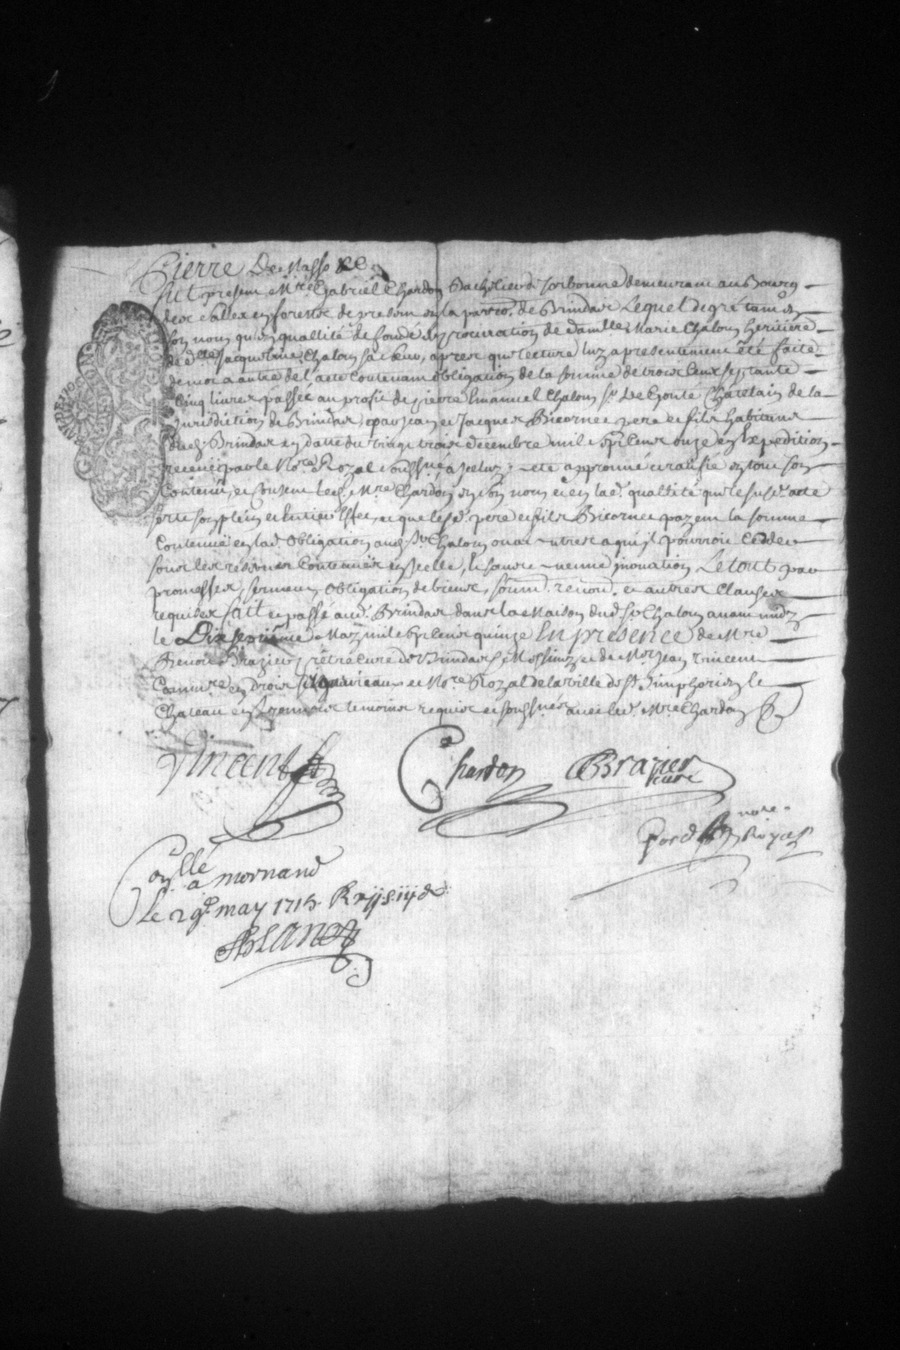 Pierre De Masso
fut present Mre Gabriel Chardon Bachelier de Sorbonne demeurant au Bourg
de en forests de present en la parro. de Brindas Lequel de gré tant en
son nom qu'en quallité de fondé de procuration de damlle Marie Chalon heritière
de dlle Jacqueline Chalon sa sœur, apres que lecture luy a presentement été faite
de mot a autre de l'acte Contenant obligation de la somme de trois Cent septante
Cinq livres passée au profit de pierre Emanuel Chalon sr De Chatelain de la
jurisdiction de Brindas, par jean et Jacques Bicornee pere et fils habitans
dud. Brindas en datte du vingt trois decembre mil sept cent onze en Expedition
receue par le Nore Royal soussigné a iceluy été approuvé et ratifié en tout son
Contenu, et Consent led. Mre Chardon en son nom et en lad. quallité que le susd. acte
sorte son plein et Entier Effet, et que lesd. pere et fils Bicornee payent la somme
Contenue en lad. Obligation aud. sr Chalon ou a autres a qui il pourroit Cedder
sous les reserves Contenues en icelle, et sans aucune inovation Le tout par
promesses, serment, Obligation de biens, soum. renon. et autres Clauses
requises fait et passé aud. Brindas dans la Maison dud. sr Chalon avant midy
le Dixseptieme May mil sept Cent quinze En presence de Mre
Brazier prêtre Curé de Brindas et Messimy et de Mre Jean Vincent
en droit et Nore Royal de la ville de St Simphorien le
Chateau en Lyonnois temoins requis et soussignés avec led. Mre Chardon
Vincent
Chardon
Brazier
curé
nore
Royal
Conllé
a mornand
Le 29e may 1715. R
Blanc